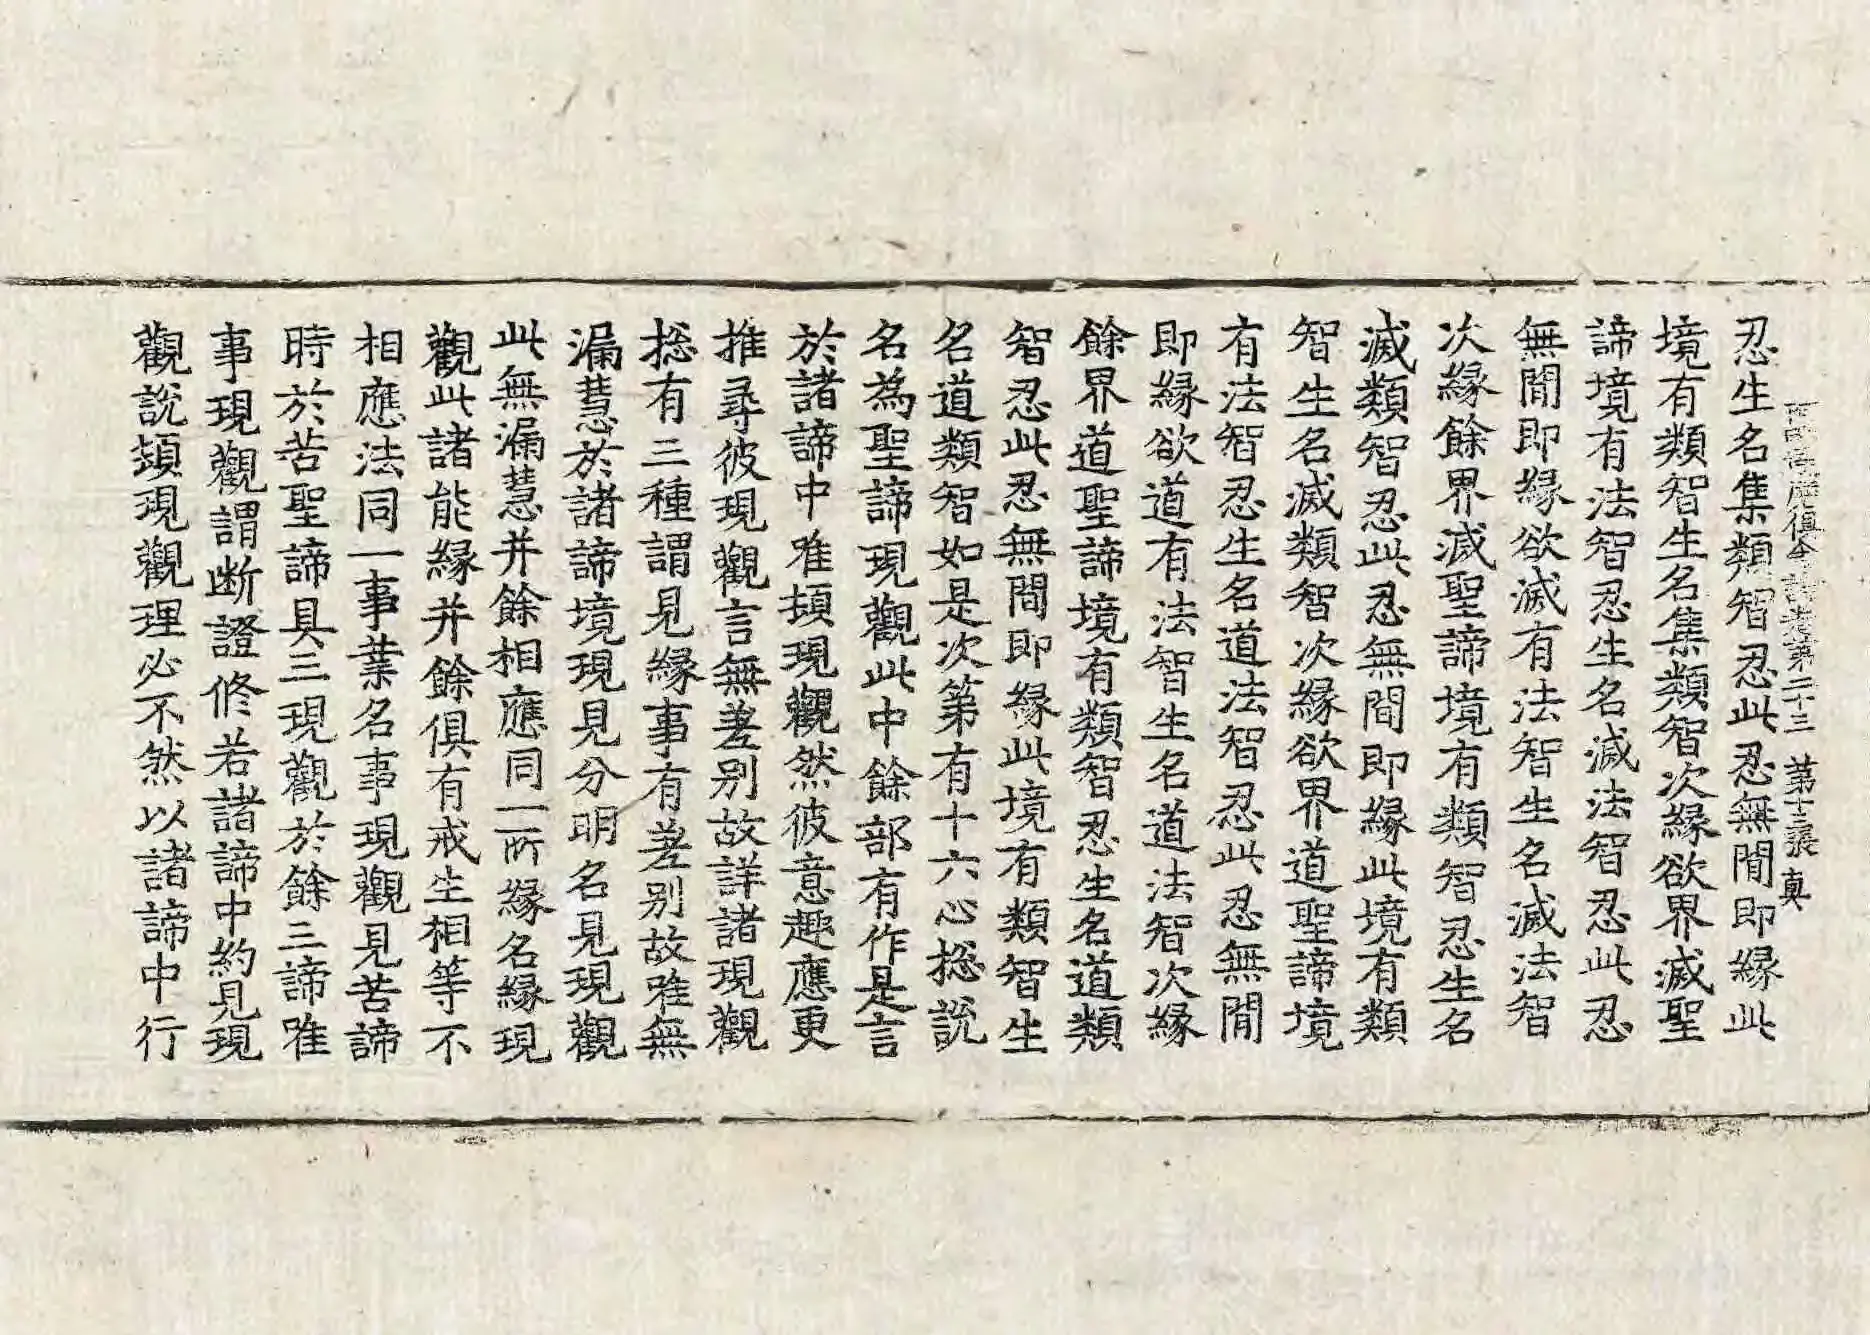 阿毗達磨俱舍論卷第二十三 第十三張 真
忍生名集類智忍此忍無間即緣此
境有類智生名集類智次緣欲界滅聖
諦境有法智忍生名滅法智忍此忍
無間即緣欲滅有法智生名滅法智
次緣餘界滅聖諦境有類智忍生名
滅類智忍此忍無間即緣此境有類
智生名滅類智次緣欲界道聖諦境
有法智忍生名道法智忍此忍無間
即緣欲道有法智生名道法智次緣
餘界道聖諦境有類智忍生名道類
智忍此忍無間即緣此境有類智生
名道類智如是次第有十六心捴說
名為聖諦現觀此中餘部有作是言
於諸諦中唯頓現觀然彼意趣應更
推尋彼現觀言無差別故詳諸現觀
捴有三種謂見緣事有差別故唯無
漏慧於諸諦境現見分明名見現觀
此無漏慧并餘相應同一所緣名緣現
觀此諸能緣并餘俱有戒生相等不
相應法同一事業名事現觀見苦諦
時於苦聖諦具三現觀於餘三諦唯
事現觀謂斷證修若諸諦中約見現
觀說頓現觀理必不然以諸諦中行